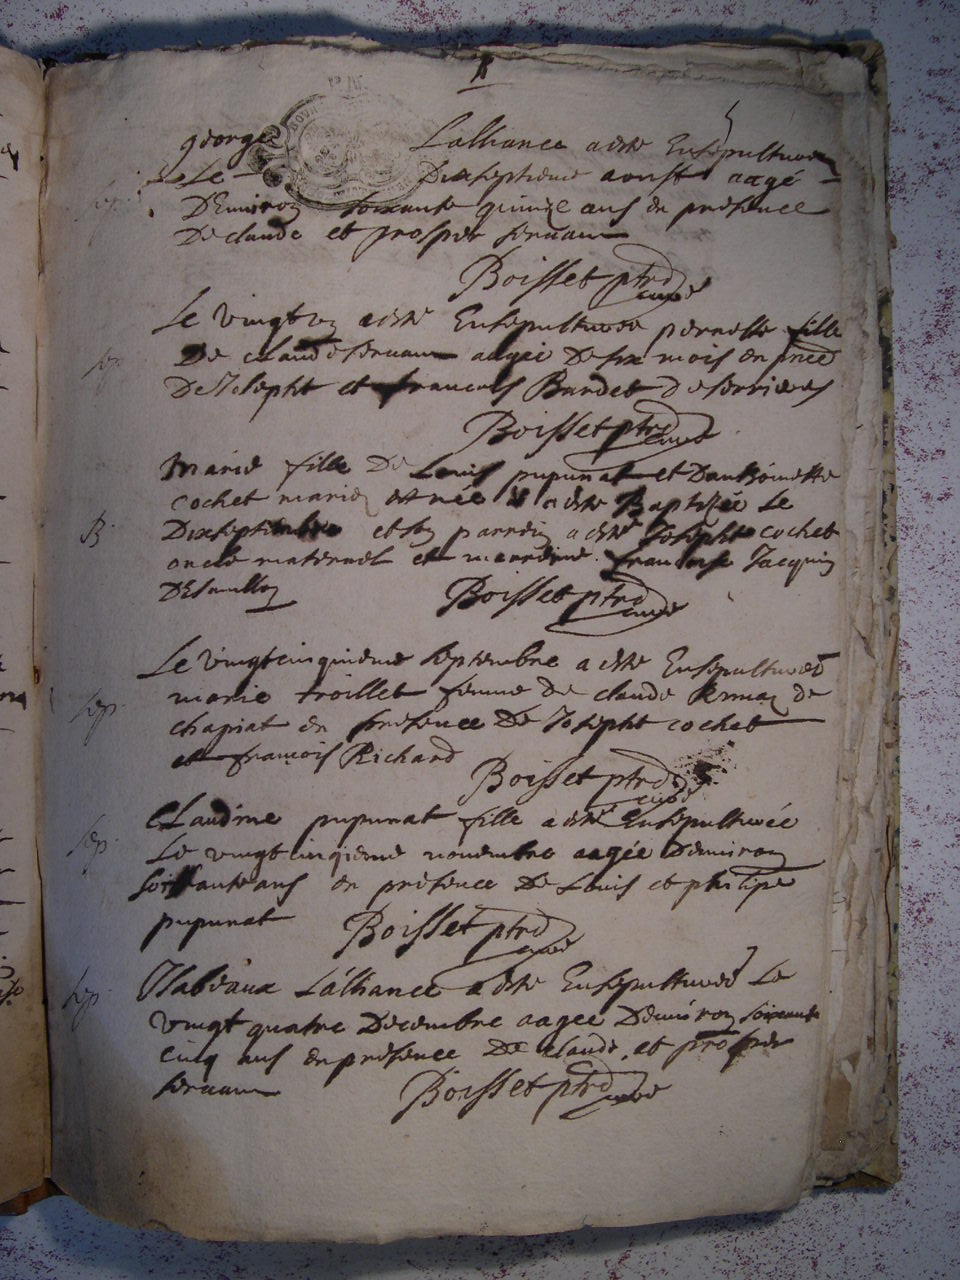 george Lalliance a este Ensepulturé
Le Dixseptieme aoust aagé
Denviron soixante quinze ans en presence
De claude et prosper servam
Boisset ptre curé
Le vingt a esté Ensepulturée pernette fille
De claude servam aagée De six mois en pnce
De Joseptht et francois Bardet De serrieres
Boisset ptre curé
sep
Marie fille De Louis pupunat et Danthoinette
cochet mariez est née a este Baptisée Le
B
Dixseptembre et son parrein a esté Josepht cochet
oncle maternel et marreine francoise Jacquin
Boisset ptre curé
Le vingtcinquieme septembre a este Ensepulturée
marie troillet femme de claude de
sep
chapiat en presence De Josepht cochet
et francois Richard
Boisset ptre curé
Claudine pupunat fille a esté Ensepulturée
sep
Le vingt cinqieme novembre aagée Denviron
soissante ans en presence De Louis et philipe
pupunat Boisset ptre curé
Isabeaux Lalliance a este Ensepulturée Le
sep
vingt quatre Decembre aagée Denviron soixante
cinq ans en presence De claude et prosper
servam Boisset ptre curé